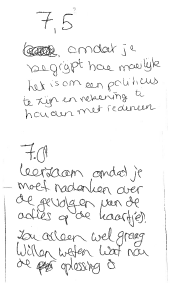 7,5
omdat je
begrijpt hoe moeilijk
het is om een politicus
te zijn en rekening te
houden met iedereen
7.0
leerzaam omdat je
moet nadenken over
de gevolgen van de
acties op de kaartjes
zou alleen wel graag
willen weten wat nou
de oplossing